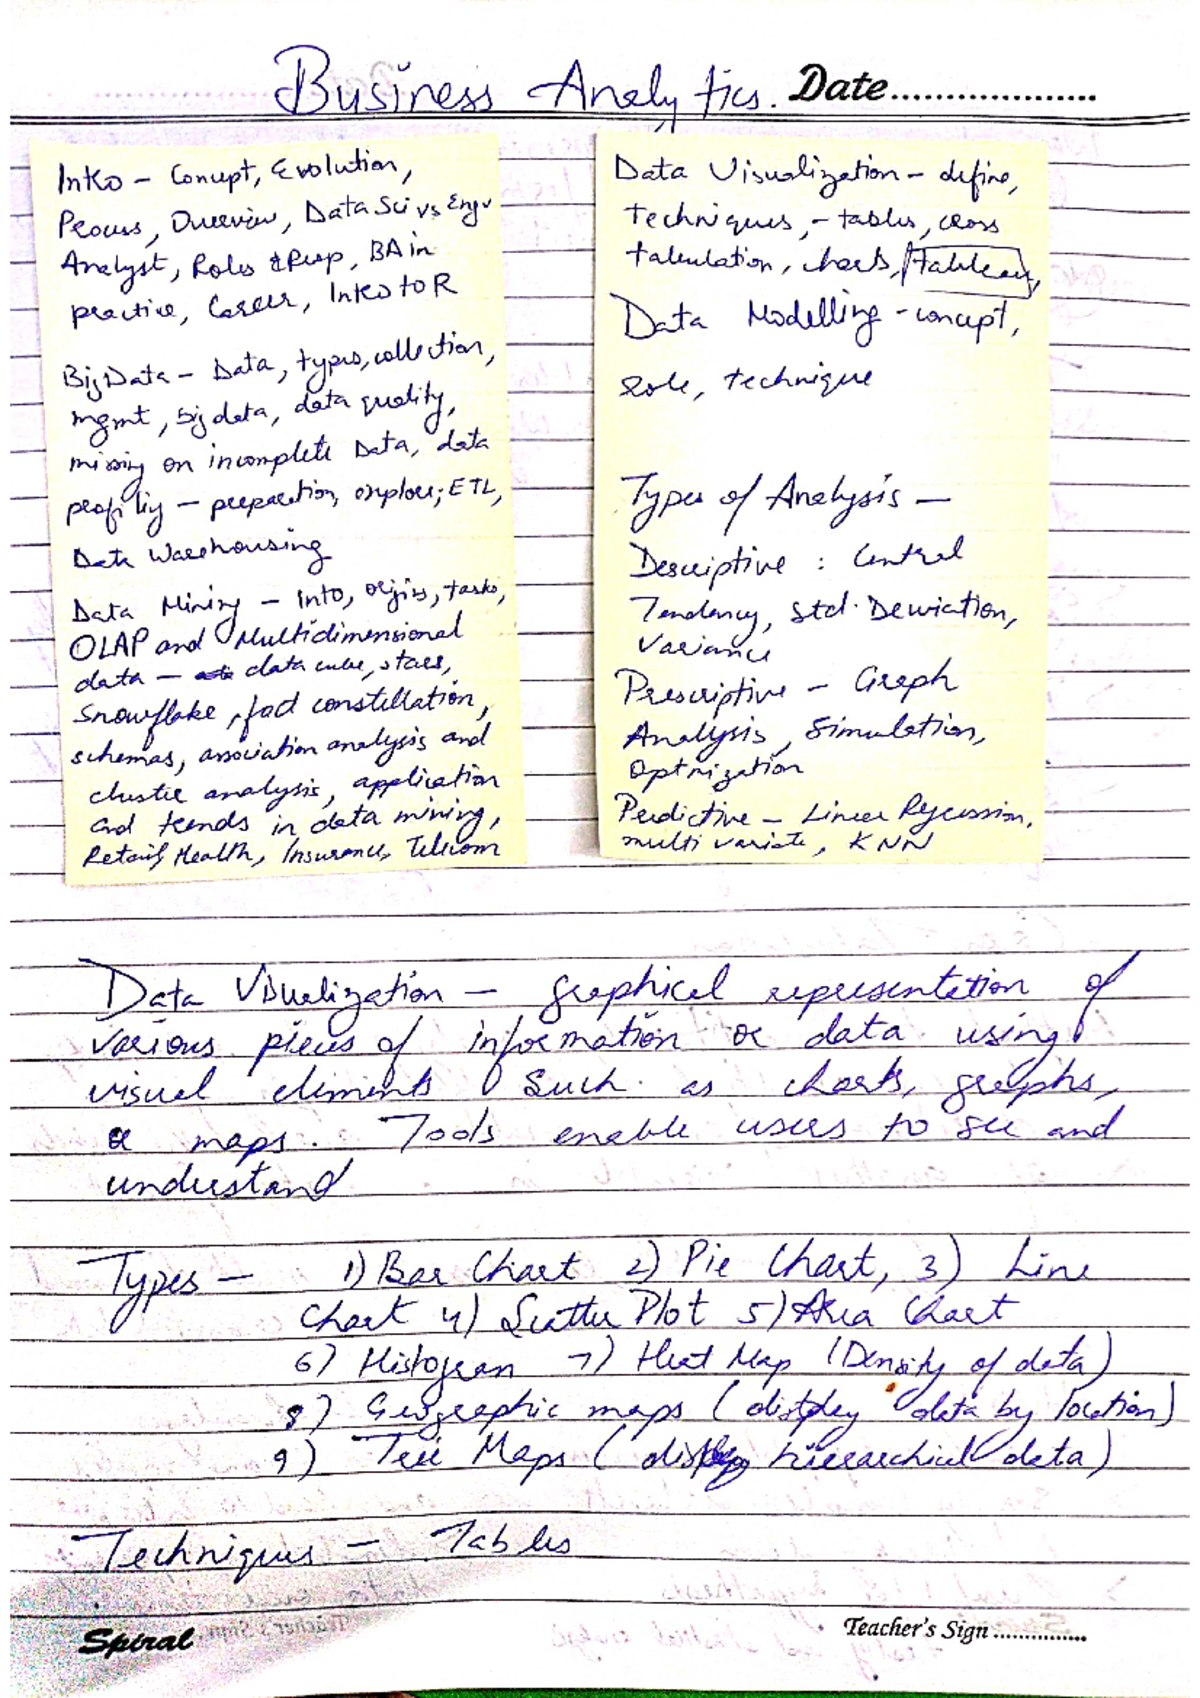 Business Analytics. Date...................
Intro – Concept, Evolution,
Process, Overview, Data Sci vs Engr
Analyst, Roles & Resp, BA in
practice, Career, Intro to R
Big Data – Data, types, collection,
mgmt, big data, data quality,
missing on incomplete Data, data
profiling – preparation, explore, ETL,
Data Warehousing
Data Mining – into, origins, tasks,
OLAP and Multidimensional
data – data cube, stars,
Snowflake, fact constellation,
schemas, association analysis and
cluster analysis, application
and trends in data mining,
Retail, Health, Insurance, Telecom
Data Visualization – define,
techniques, – tables, cross
tabulation, charts, tableau,
Data Modelling – concept,
role, technique
Types of Analysis –
Descriptive : Central
Tendency, Std. Deviation,
Variance
Prescriptive – Graph
Analysis, Simulation,
Optmization
Perdictive – Linear Regression,
multi variate, KNN
Data Visualization – graphical representation of
various pieces of information or data using
visual elements such as charts, graphs,
or maps. Tools enable users to see and
understand
Types – 1) Bar Chart 2) Pie Chart, 3) Line
Chart 4) Scatter Plot 5) Area Chart
6) Histogram 7) Heat Map (Density of data)
8) Geographic maps (display data by location)
9) Tree Maps (display hierarchical data)
Techniques – Tables
Spiral Teacher's Sign ...............